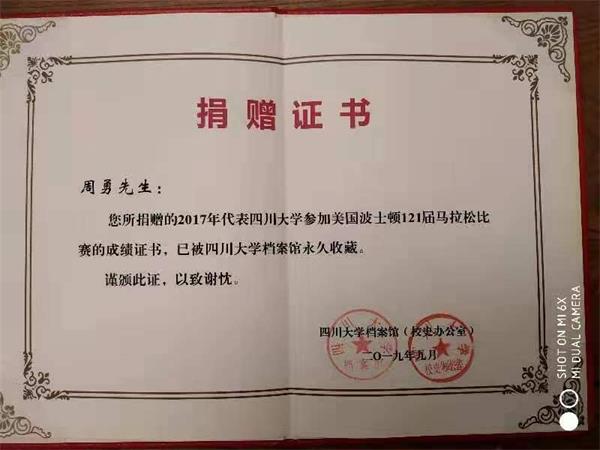 捐赠证书
周勇先生：
您所捐赠的2017年代表四川大学参加美国波士顿121届马拉松比
赛的成绩证书，已被四川大学档案馆永久收藏。
谨颁此证，以致谢忱。
四川大学档案馆（校史办公室）
二〇一九年九月
SHOT ON MI 6X
MI DUAL CAMERA